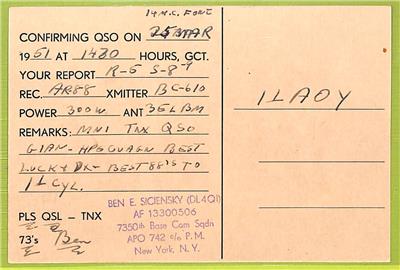 14 M.C. FONE
CONFIRMING QSO ON 25 MAR
1951 AT 1430 HOURS, GCT.
YOUR REPORT R-5 S-8-9
REC. AR88 XMITTER BC-610
POWER 300W ANT 3EL BM
REMARKS: MNI TNX QSO
GIAN - HPE CUAGN BEST
LUCK + DX - BEST 88'S TO
I1CYL.
PLS QSL - TNX
73's Ben
BEN E. SICIENSKY (DL4QI)
AF 13300506
7350th Base Com Sqdn
APO 742 c/o P.M.
New York, N. Y.
I1AOY